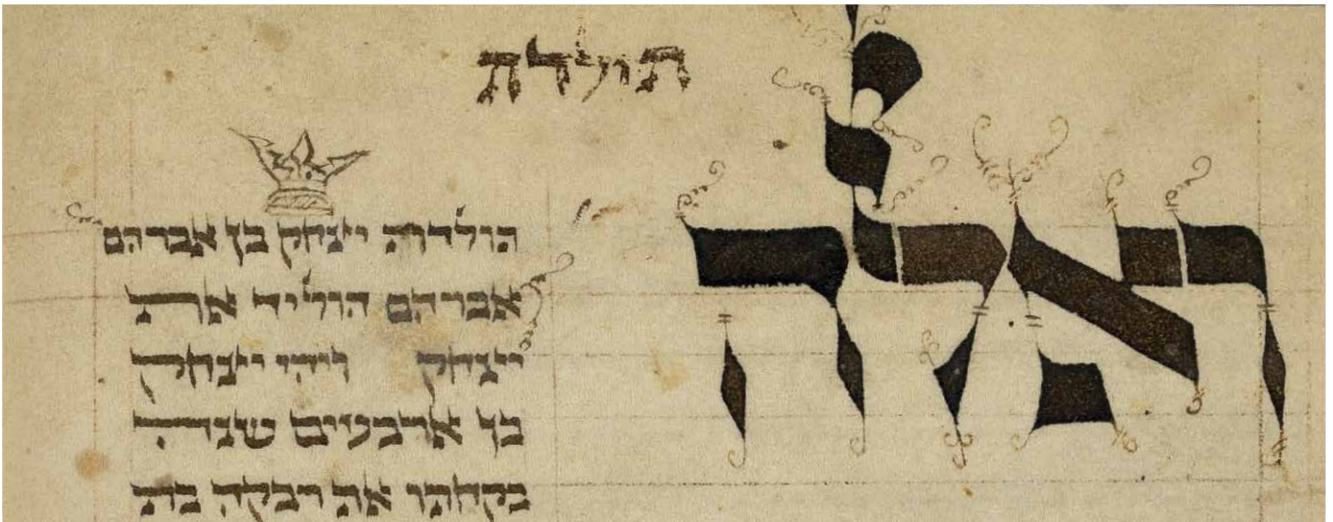 תולדת
ואלה
תולדת יצחק בן אברהם
אברהם הוליד את
יצחק ויהי יצחק
בן ארבעים שנה
בקחתו את רבקה בת